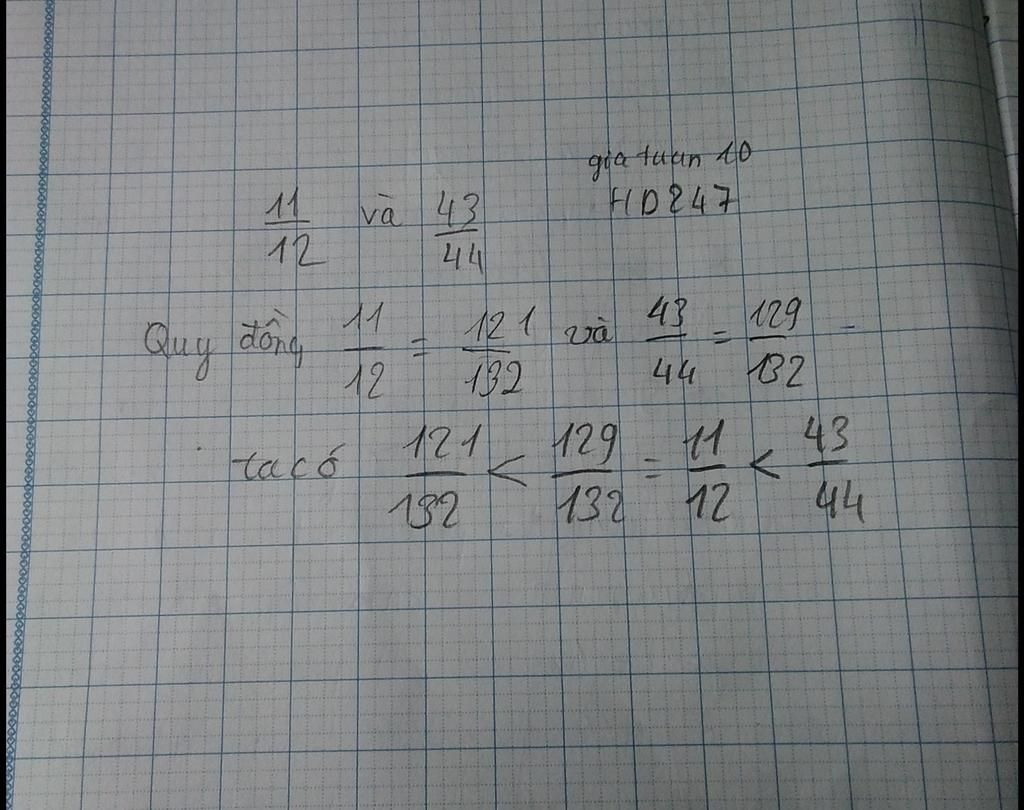 gia tuan 10
HD247
11/12 và 43/44
Quy đồng 11/12 = 121/132 và 43/44 = 129/132 -
ta có 121/132 < 129/132 = 11/12 < 43/44